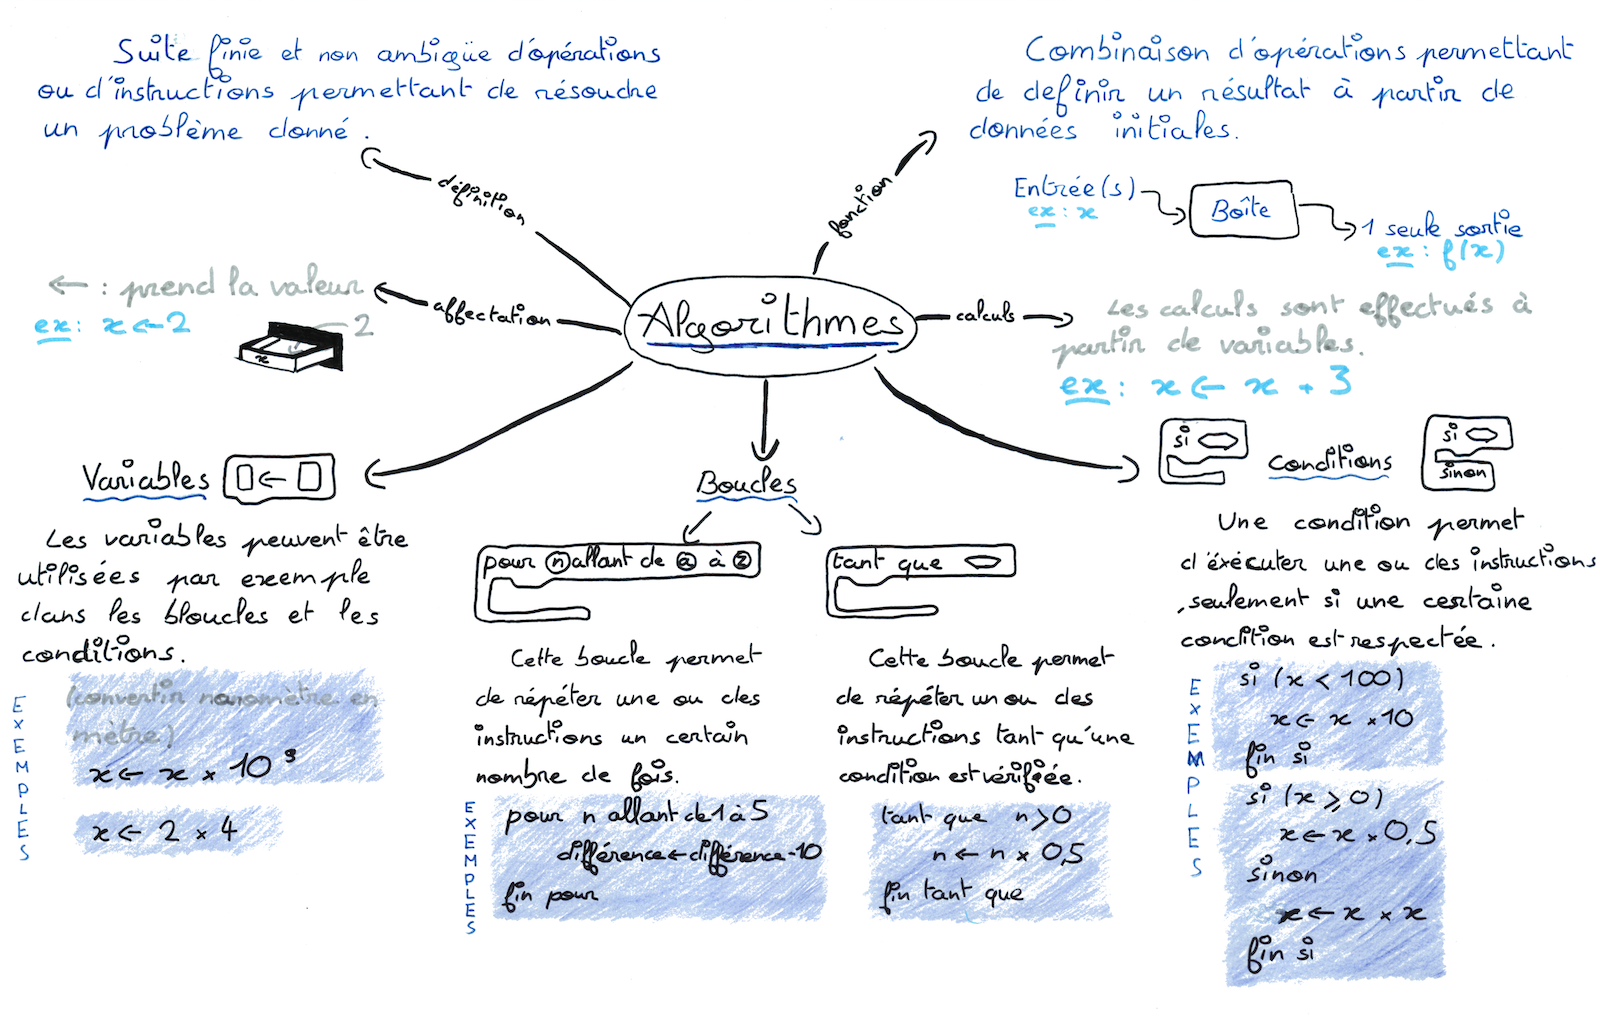 Suite finie et non ambigüe d'opérations
ou d'instructions permettant de résoudre
un problème donné.
définition
Combinaison d'opérations permettant
de definir un résultat à partir de
données initiales.
fonction
Entrée(s)
ex : x
Boîte
1 seule sortie
ex : f(x)
← : prend la valeur
ex : x ← 2
2
x
affectation
Algorithmes
calculs
Les calculs sont effectués à
partir de variables.
ex : x ← x + 3
Variables
←
Les variables peuvent être
utilisées par exemple
dans les bloucles et les
conditions.
EXEMPLES
(convertir nanomètre en
mètre)
x ← x × 10 9
x ← 2 × 4
Boucles
pour n allant de a à z
Cette boucle permet
de répéter une ou des
instructions un certain
nombre de fois.
EXEMPLES
pour n allant de 1 à 5
différence ← différence - 10
fin pour
tant que
Cette boucle permet
de répéter un ou des
instructions tant qu'une
condition est vérifiée.
tant que n > 0
n ← n × 0,5
fin tant que
si
Conditions
si
sinon
Une condition permet
d'éxécuter une ou des instructions
seulement si une certaine
condition est respectée.
EXEMPLES
si (x < 100)
x ← x × 10
fin si
si (x ⩾ 0)
x ← x × 0,5
sinon
x ← x × x
fin si